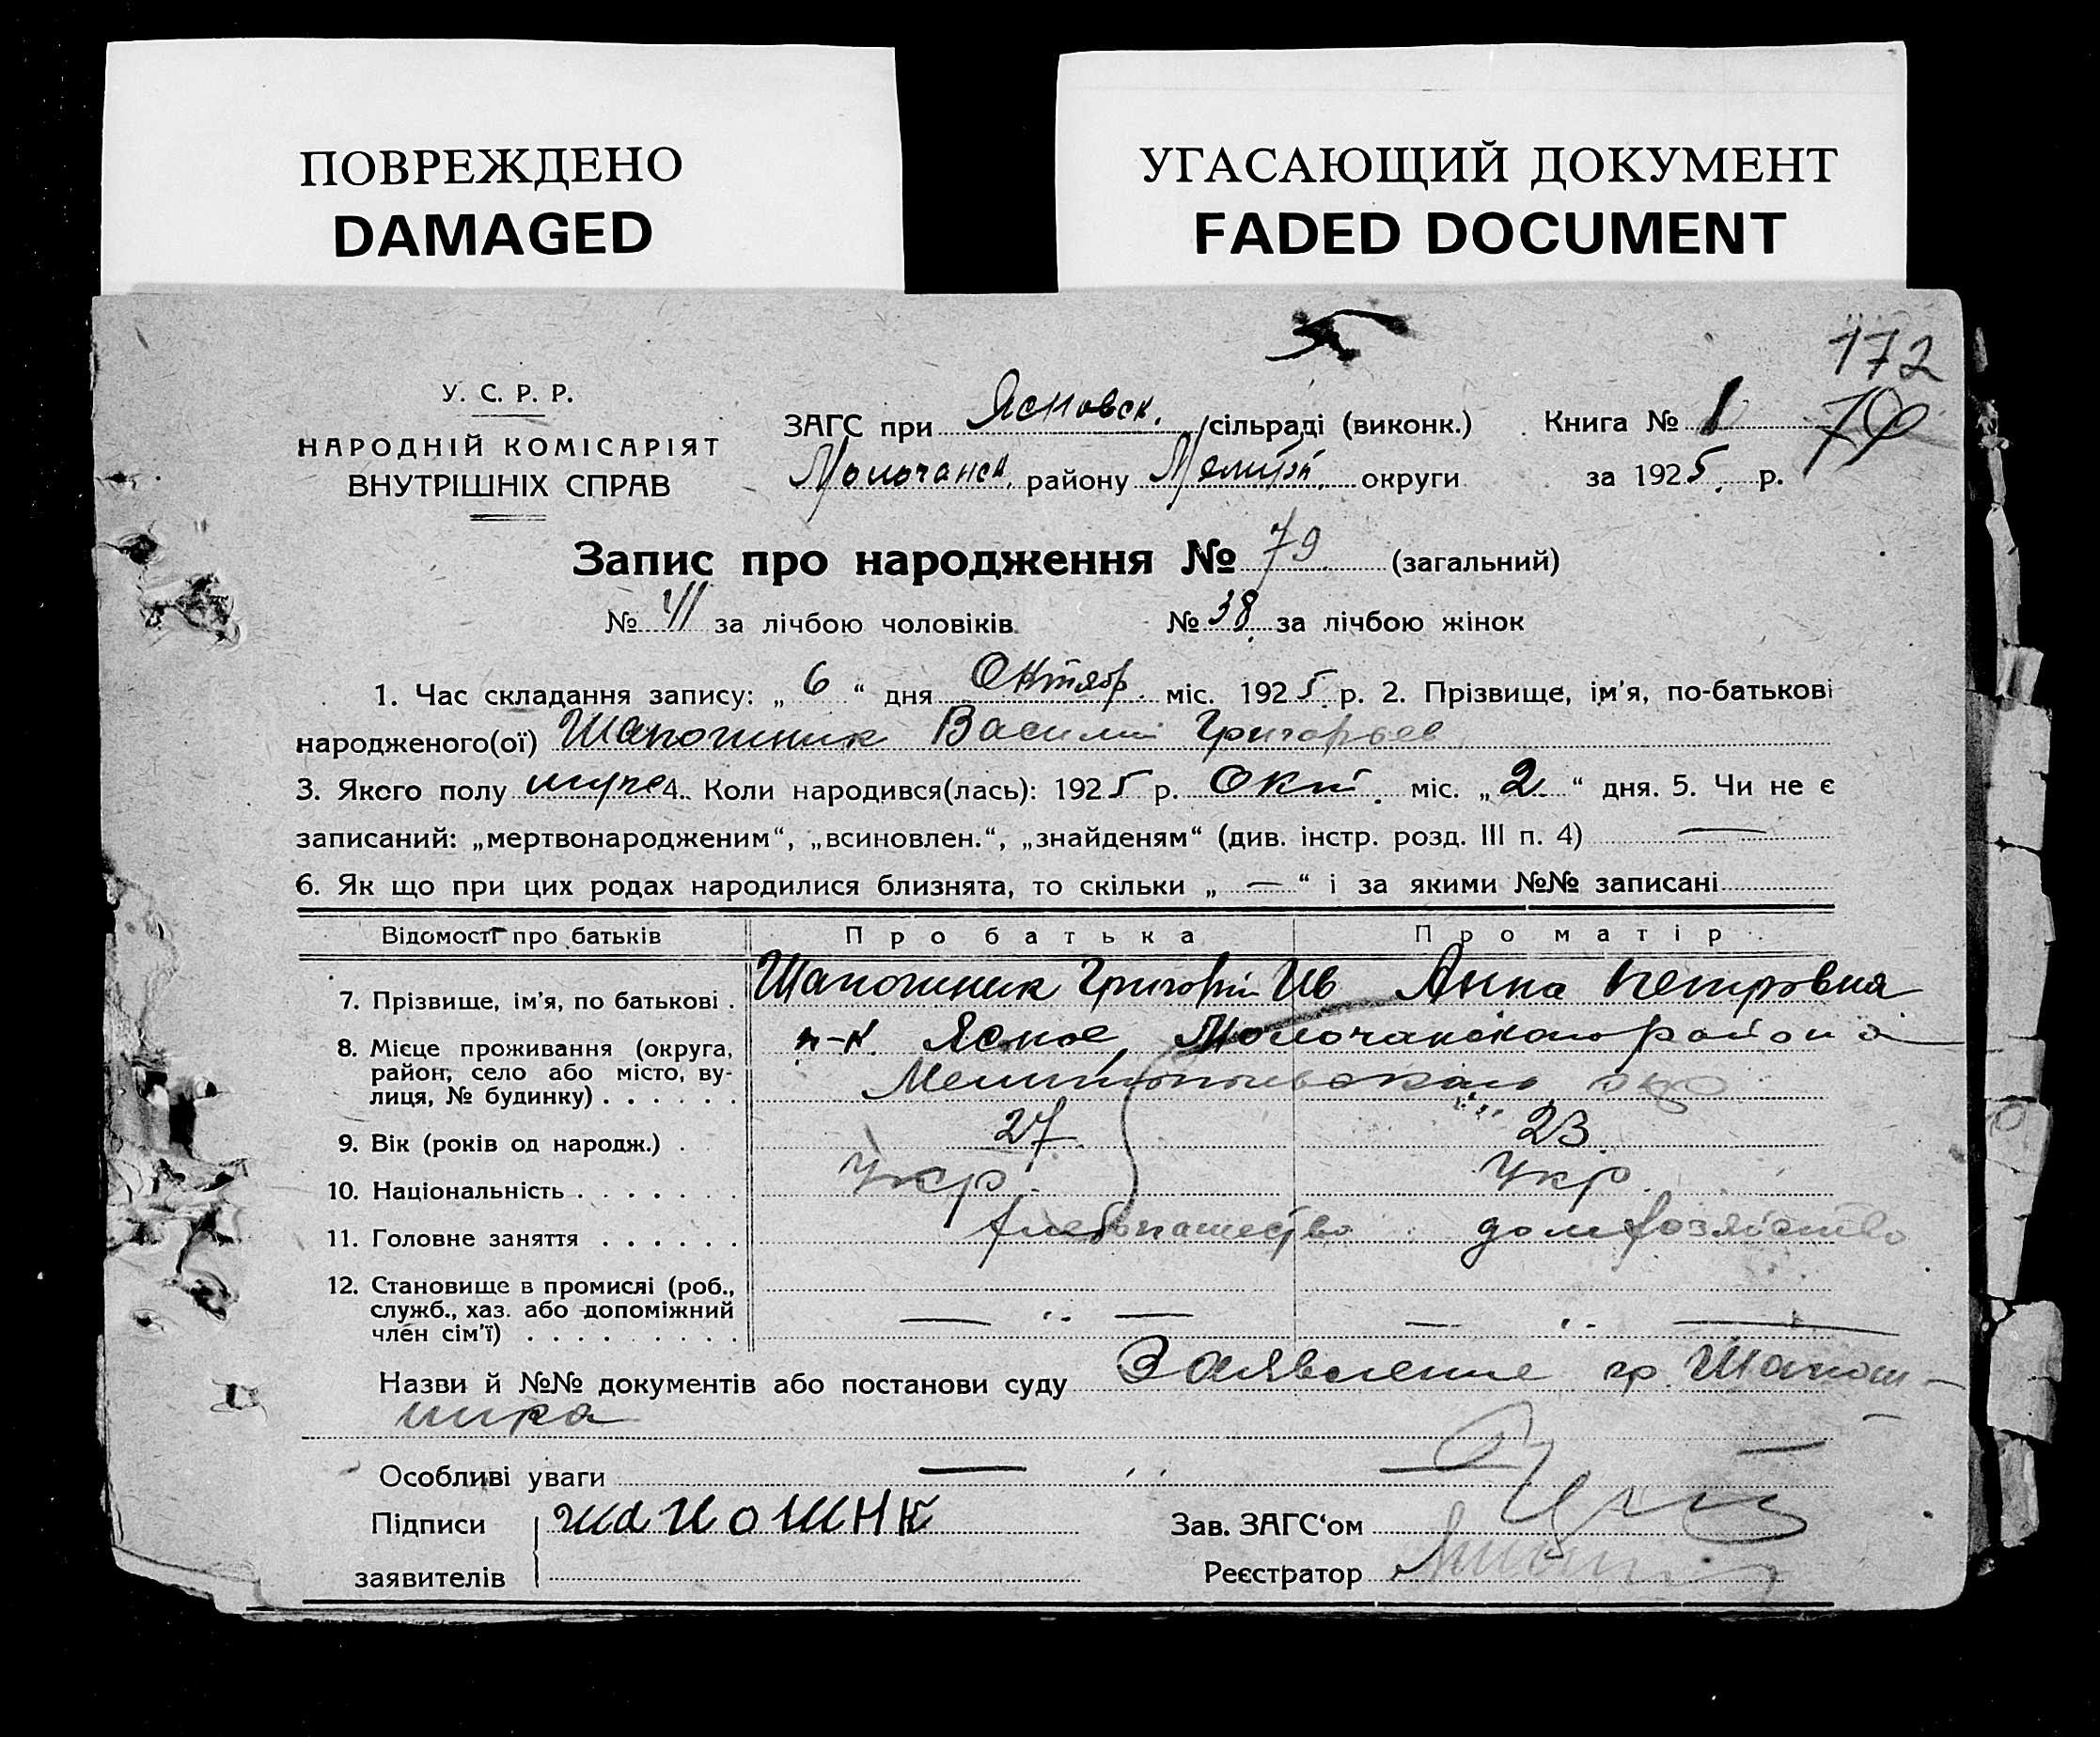 ПОВРЕЖДЕНО
DAMAGED
УГАСАЮЩИЙ ДОКУМЕНТ
FADED DOCUMENT
172
79
У. С. Р. Р.
НАРОДНІЙ КОМІСАРІЯТ
ВНУТРІШНІХ СПРАВ
ЗАГС при Ясновск. сільраді (виконк.) Книга № 1
Молочанск. району Мелит. округи за 1925 р.
Запис про народження № 79 (загальний)
№ 41 за лічбою чоловіків № 38 за лічбою жінок
1. Час складання запису: „ 6 “ дня Октябр. міс. 1925 р. 2. Прізвище, ім'я, по-батькові
народженого(ої) Шапошник Василий Григорьев
3. Якого полу муже 4. Коли народився(лась): 1925 р. Окт. міс. „ 2 “ дня. 5. Чи не є
записаний: „мертвонародженим“, „всиновлен.“, „знайденям“ (див. інстр. розд. III п. 4) —
6. Як що при цих родах народилися близнята, то скільки „ — “ і за якими №№ записані
Відомості про батьків Про батька Про матір
7. Прізвище, ім'я, по батькові . Шапошник Григорий Ив Анна Петровна
8. Місце проживання (округа, район, село або місто, вулиця, № будинку) . . . . . . п-к Ясное, Молочанского района
Мелитопольского окр
9. Вік (років од народж.) . 27 23
10. Національність . . . . . . . Укр. Укр.
11. Головне заняття . . . . . . хлебопашество домхозяйство
12. Становище в промислі (роб., служб., хаз. або допоміжний член сім'ї) . . . . . . . . . — „ — — „ —
Назви й №№ документів або постанови суду Заявление гр. Шапош-
ника
Особливі уваги — „ —
Підписи шапошнк Зав. ЗАГС‘ом
заявителів Реєстратор